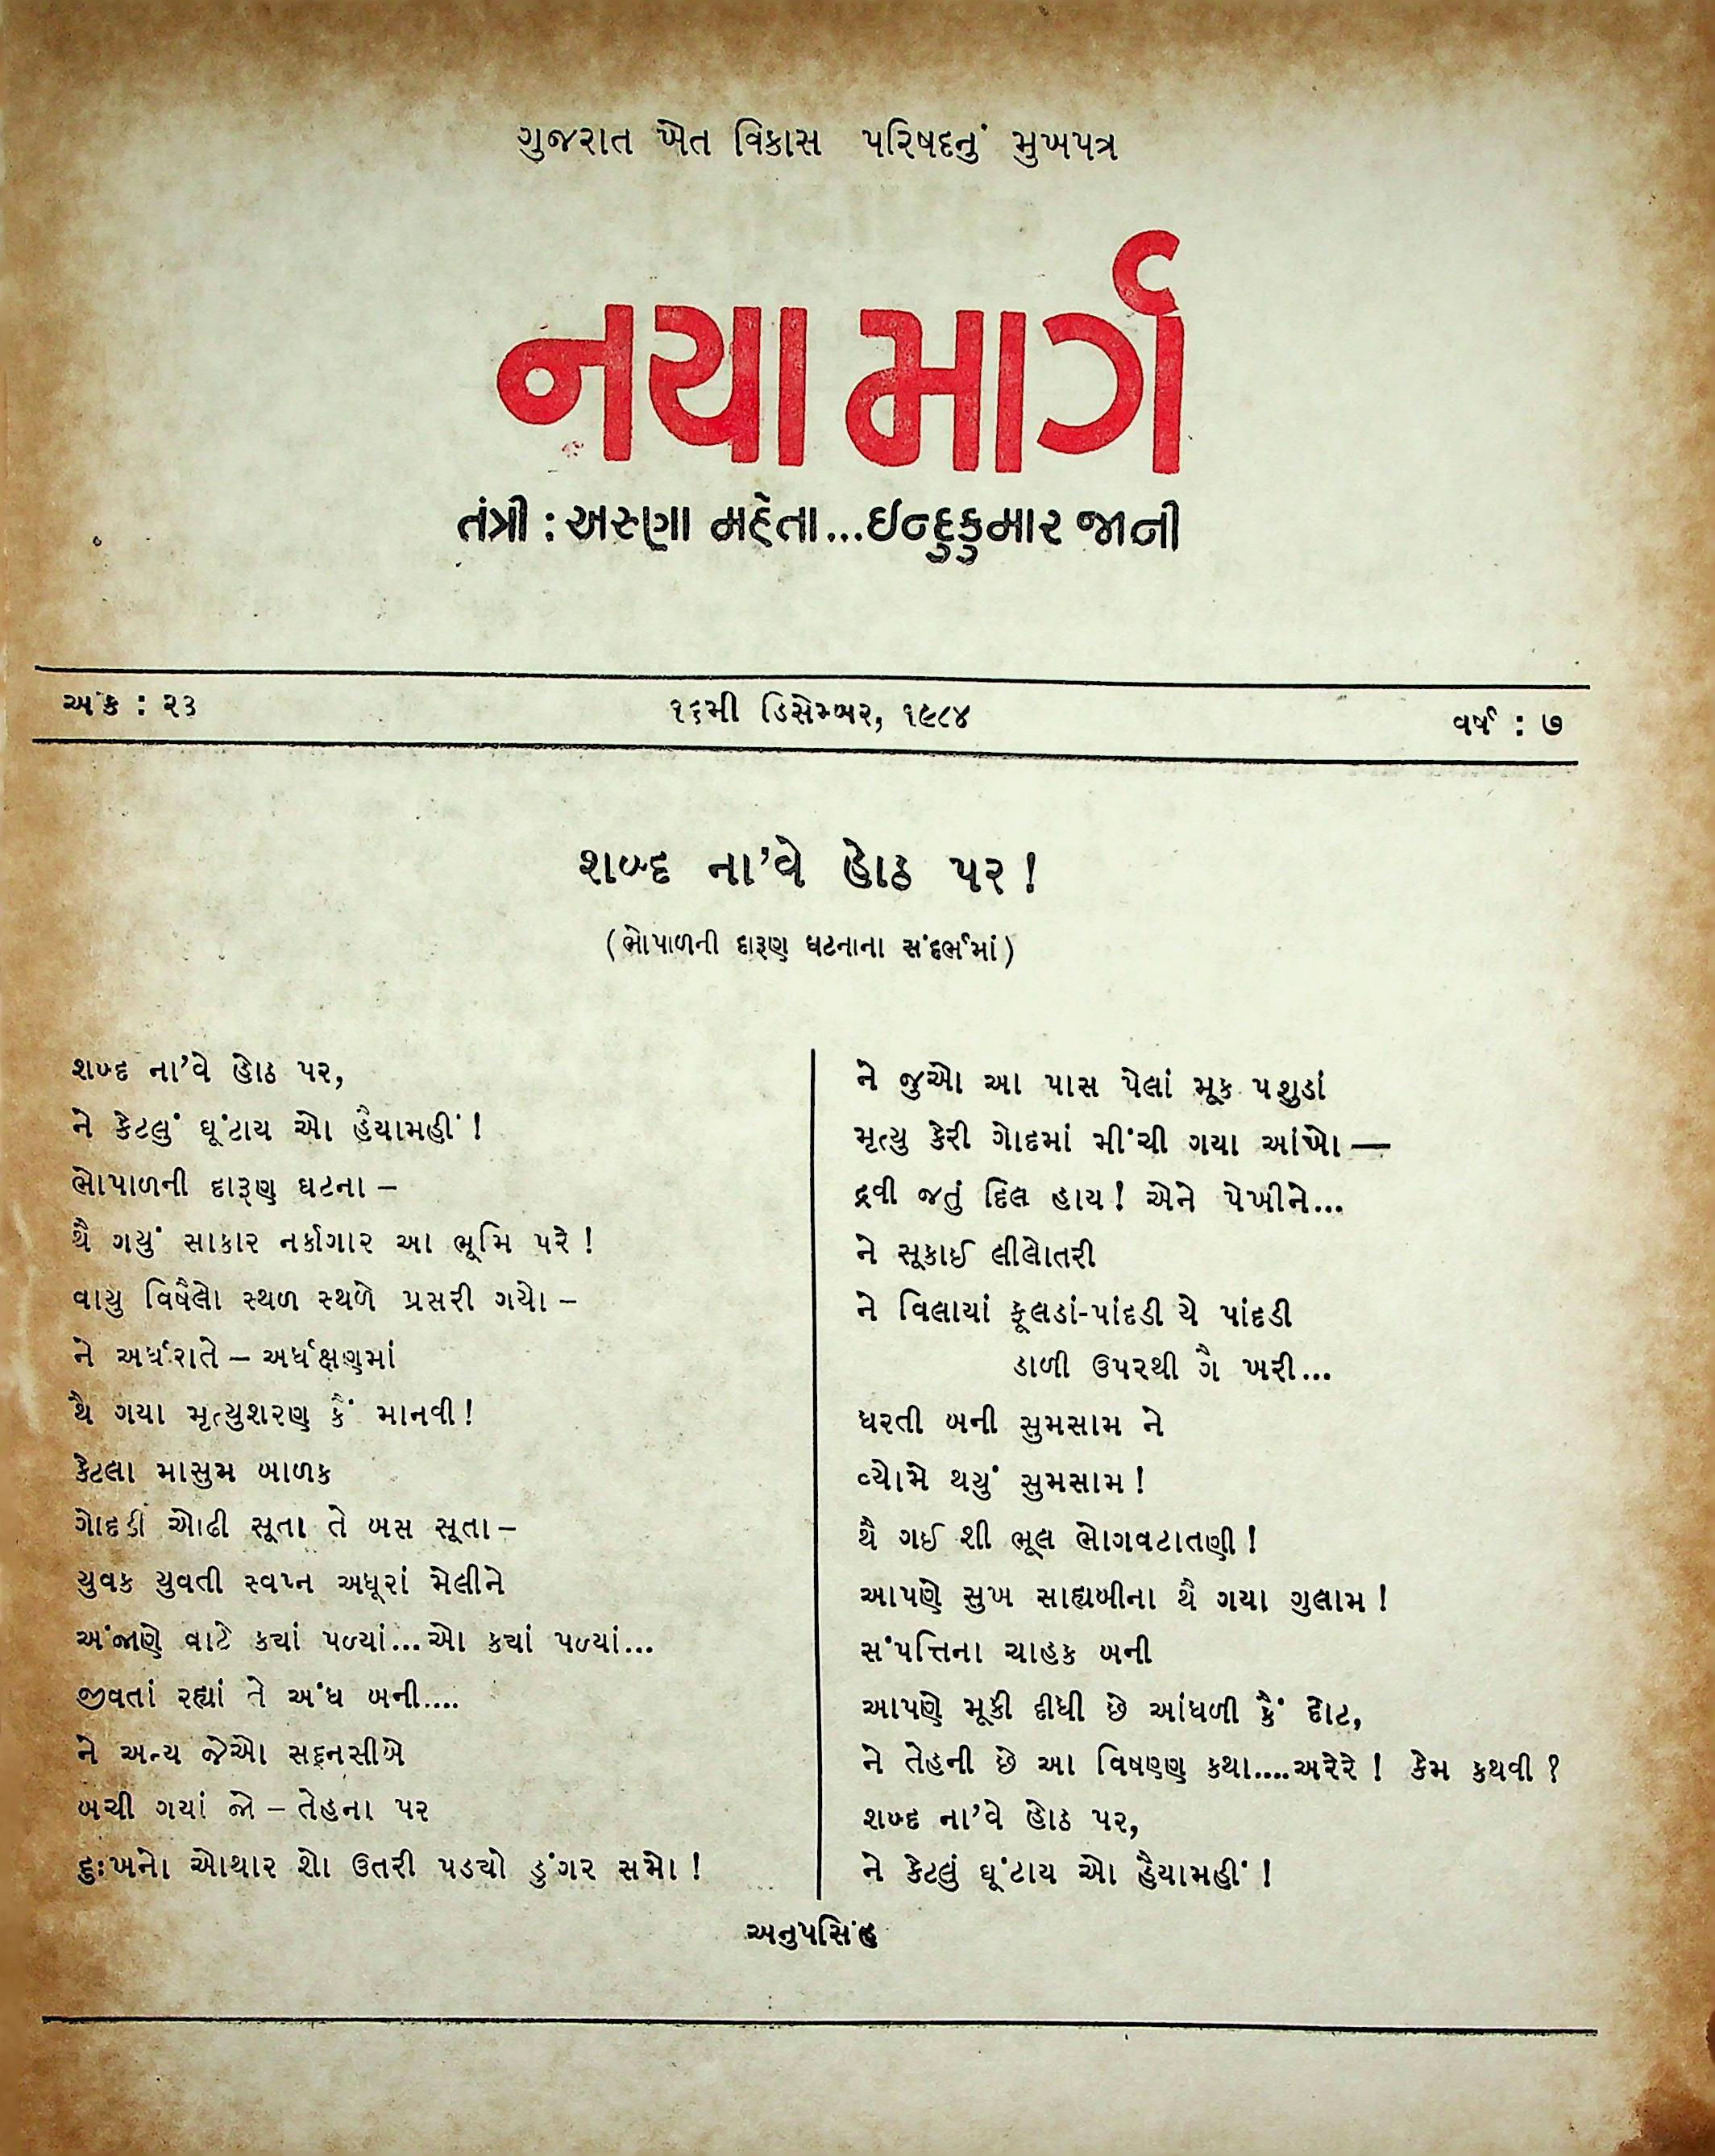 ગુજરાત ખેત વિકાસ પરિષદનું મુખપત્ર
નયા માર્ગ
તંત્રી : અરુણા મહેતા...ઇન્દુકુમાર જાની
અંક : ૨૩
૧૬મી ડિસેમ્બર, ૧૯૮૪
વર્ષ : ૭
શબ્દ ના'વે હોઠ પર !
(ભોપાળની દારૂણ ઘટનાના સંદર્ભમાં)
શબ્દ ના'વે હોઠ પર,
ને કેટલું ઘૂંટાય ઓ હૈયામહીં !
ભોપાળની દારૂણ ઘટના –
થૈ ગયું સાકાર નર્કાગાર આ ભૂમિ પરે !
વાયુ વિષૈલો સ્થળ સ્થળે પ્રસરી ગયો –
ને અર્ધરાતે – અર્ધક્ષણમાં
થૈ ગયા મૃત્યુશરણ કૈં માનવી !
કેટલા માસુમ બાળક
ગોદડી ઓઢી સૂતા તે બસ સૂતા –
યુવક યુવતી સ્વપ્ન અધૂરાં મેલીને
અંજાણે વાટે કયાં પળ્યાં...ઓ કયાં પળ્યાં...
જીવતાં રહ્યાં તે અંધ બની....
ને અન્ય જેઓ સદ્દનસીબે
બચી ગયાં જો – તેહના પર
દુઃખનો ઓથાર શો ઉતરી પડયો ડુંગર સમો !
ને જુઓ આ પાસ પેલાં મૂક પશુડાં
મૃત્યુ કેરી ગોદમાં મીંચી ગયા આંખો —
દ્રવી જતું દિલ હાય ! એને પેખીને...
ને સૂકાઈ લીલોતરી
ને વિલાયાં ફૂલડાં-પાંદડી યે પાંદડી
ડાળી ઉપરથી ગૈ ખરી...
ધરતી બની સુમસામ ને
વ્યોમે થયું સુમસામ !
થૈ ગઈ શી ભૂલ ભોગવટાતણી !
આપણે સુખ સાહ્યબીના થૈ ગયા ગુલામ !
સંપત્તિના ચાહક બની
આપણે મૂકી દીધી છે આંધળી કૈં દોટ,
ને તેહની છે આ વિષણ્ણ કથા....અરેરે ! કેમ કથવી ?
શબ્દ ના'વે હોઠ પર,
ને કેટલું ઘૂંટાય ઓ હૈયામહીં !
અનુપસિંહ